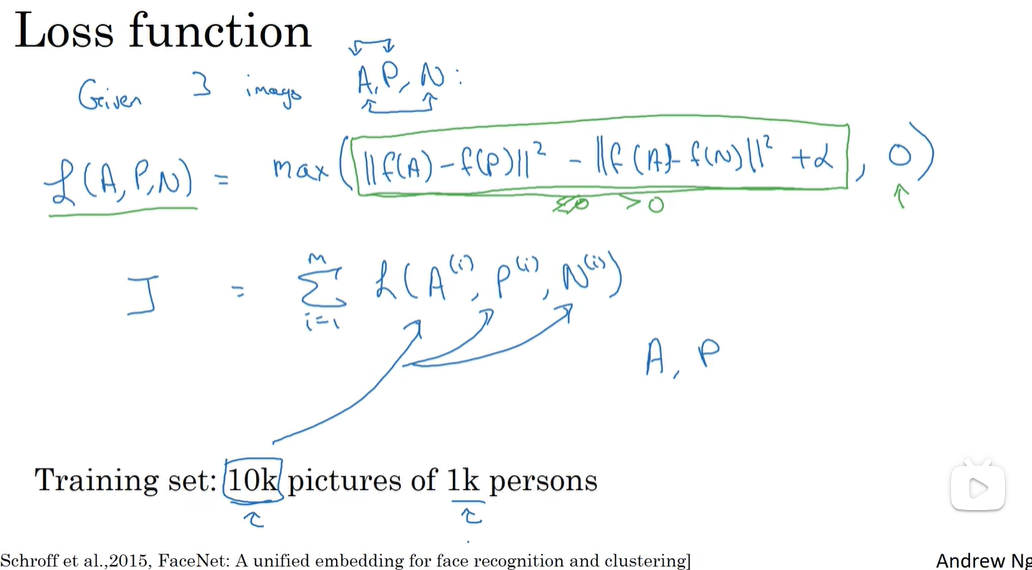 Loss function
Given 3 images A, P, N:
L(A,P,N) = max(||f(A) - f(P)||² - ||f(A) - f(N)||² + α, 0)
≤0 >0
J = Σ L(A⁽ⁱ⁾, P⁽ⁱ⁾, N⁽ⁱ⁾)
M
i=1
A, P
Training set: 10k pictures of 1k persons
Schroff et al.,2015, FaceNet: A unified embedding for face recognition and clustering]
Andrew Ng